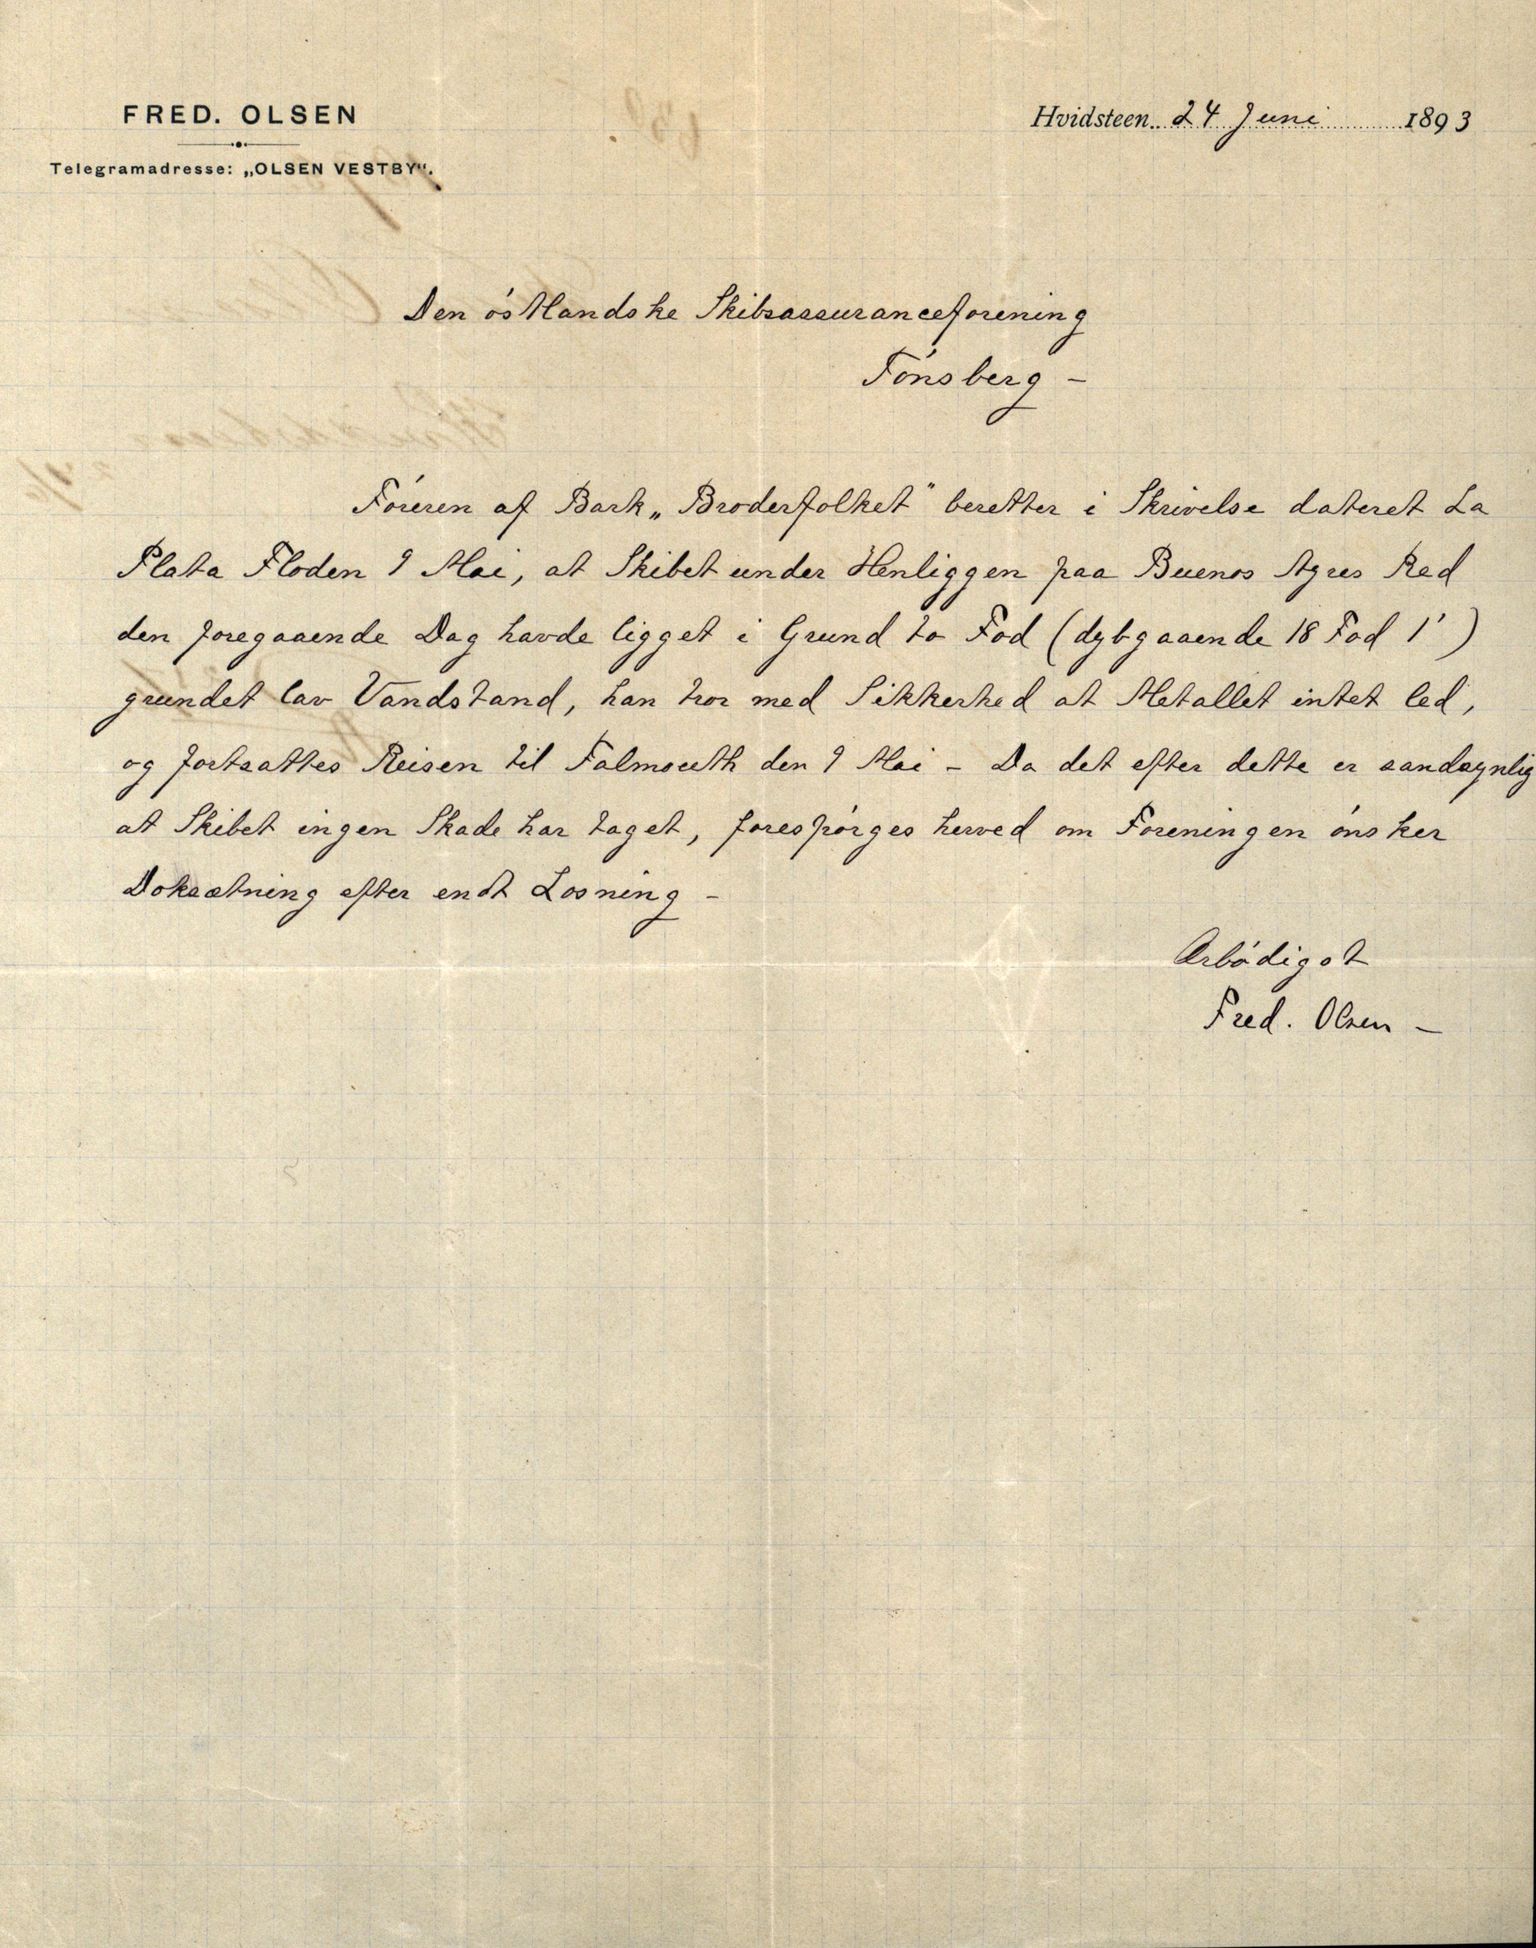 FRED. OLSEN
Telegramadresse: „OLSEN VESTBY“.
Hvidsteen 24 Juni 1893
Den óstlandske Skibsassuranceforening
Tónsberg –
Fóreren af Bark „Broderfolket" beretter i Skrivelse dateret La
Plata Floden 9 Mai, at Skibet under Henliggen paa Buenos Ayres Red
den foregaaende Dag havde ligget i Grund to Fod (dybgaaende 18 Fod 1')
grundet lav Vandstand, han tror med Sikkerhed at Metallet intet led,
og fortsattes Reisen til Falmouth den 9 Mai – Da det efter dette er sandsynlig
at Skibet ingen Skade har taget, forespórges herved om Foreningen ónsker
Doksætning efter endt Losning –
Ærbódigst
Fred. Olsen –